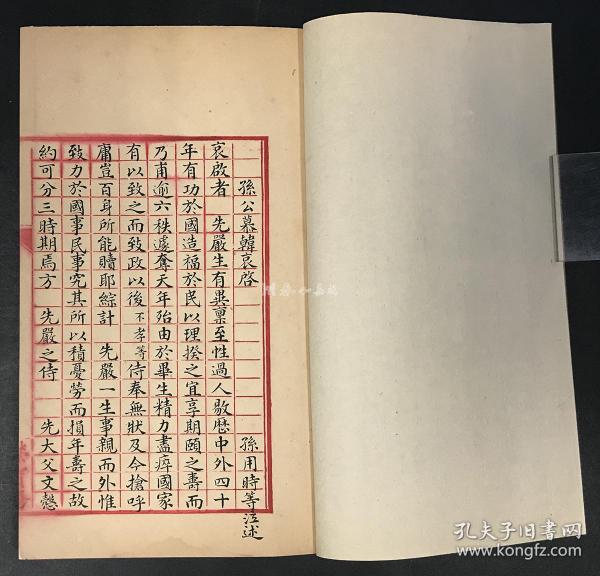 孫公慕韓哀啓
孫用時等泣述
哀啟者　先嚴生有異稟至性過人敭歷中外四十
年有功於國造福於民以理揆之宜享期頤之壽而
乃甫逾六秩遽奪天年殆由於畢生精力盡瘁國家
有以致之而致政以後不孝等侍奉無狀及今搶呼
庸豈百身所能贖耶綜計　先嚴一生事親而外惟
致力於國事民事究其所以積憂勞而損年壽之故
約可分三時期焉方　先嚴之侍　先大父文慤
孔夫子旧书网
www.kongfz.com